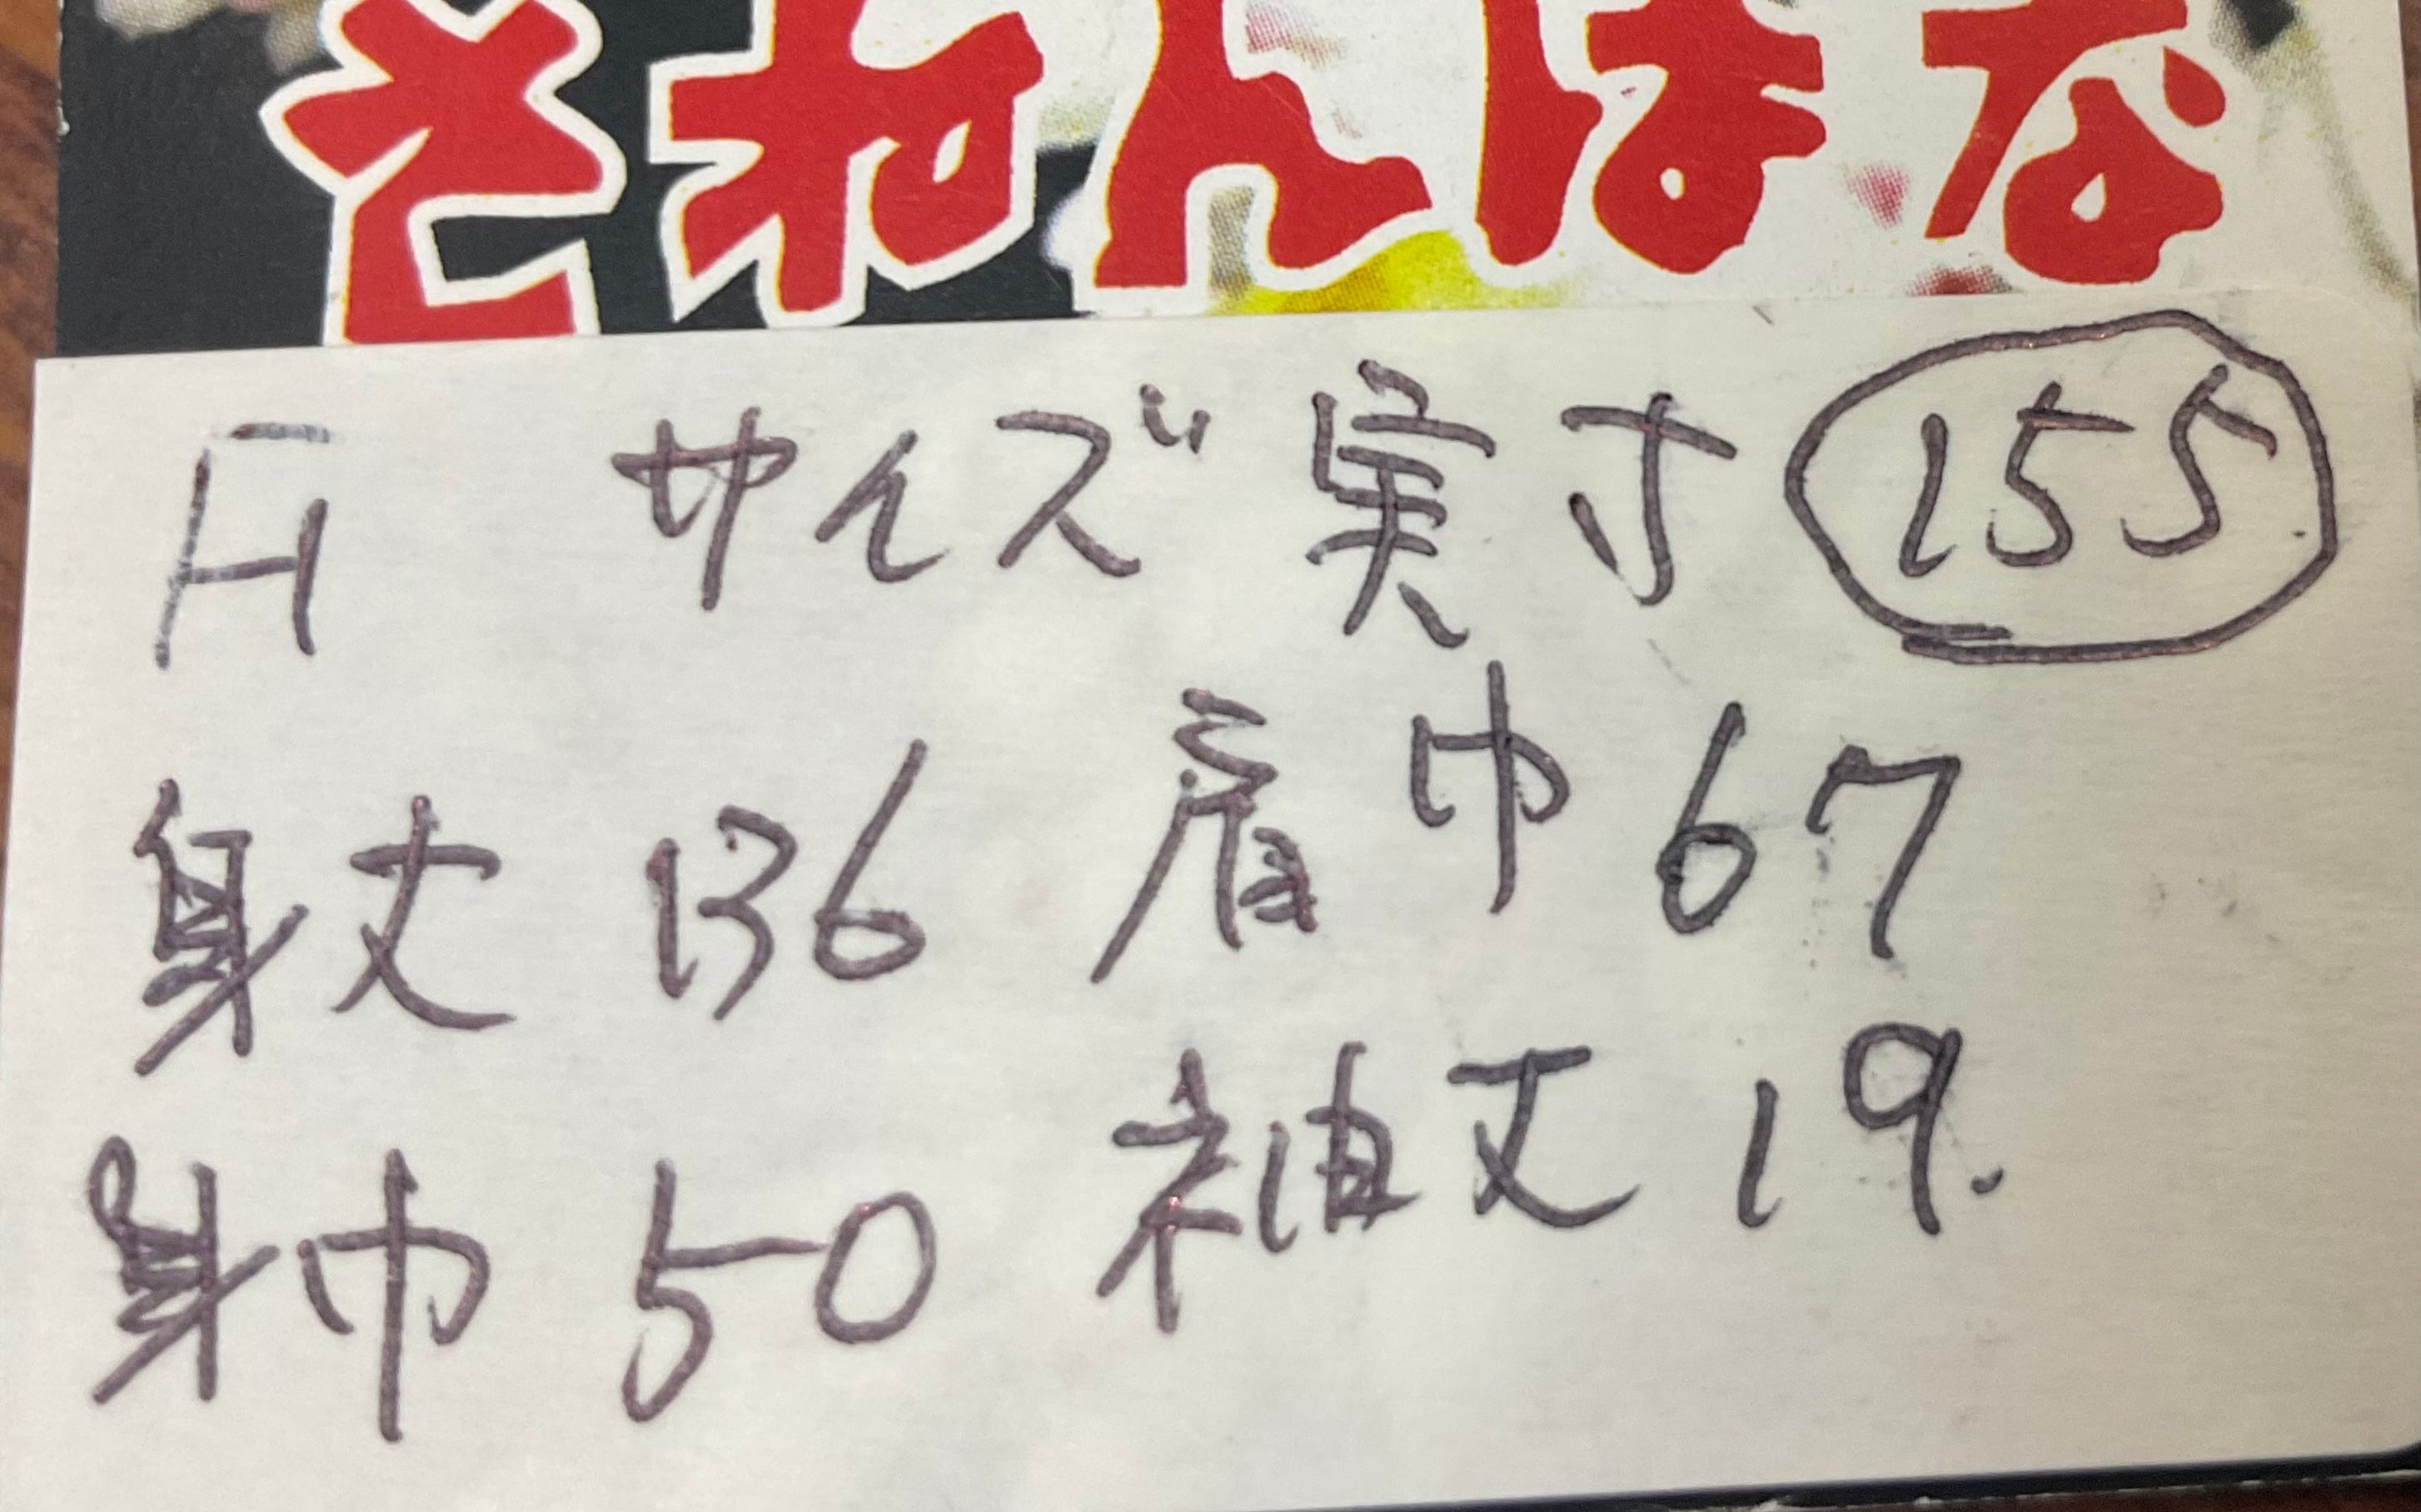 サイズ 実寸 155
身丈 136 肩巾 67
身巾 50 袖丈 19.